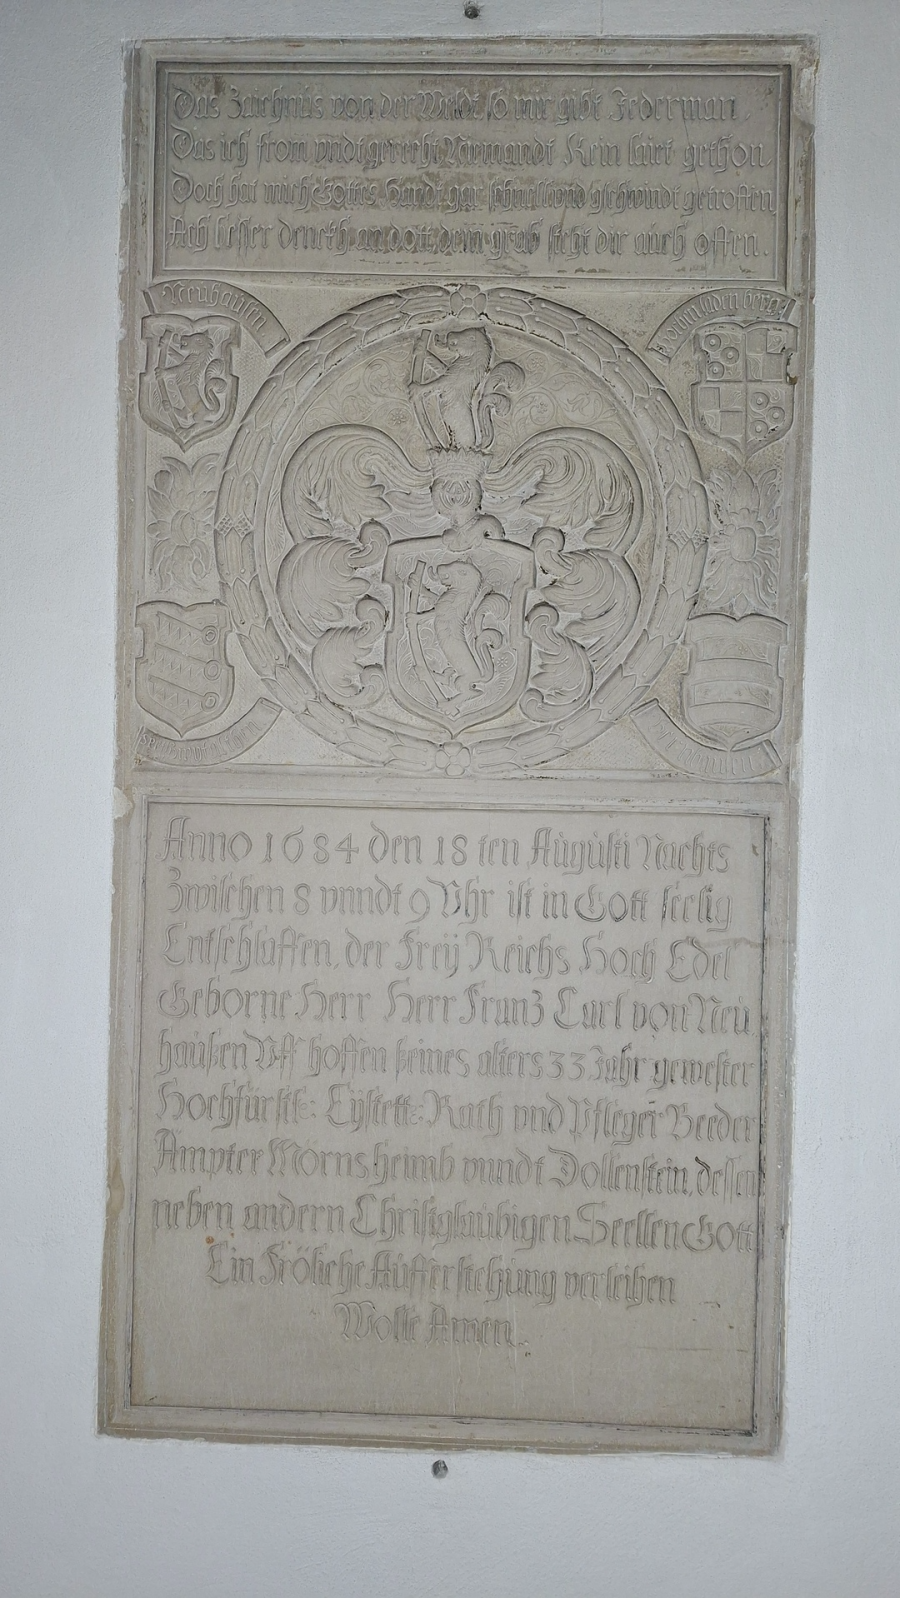 Das Zaichnus von der Weldt so mir gibt Jederman,
Das ich from vndt gerecht Niemandt Kein laiet gethon.
Doch hat mich Gottes Handt gar schnell vnd gschwindt getroffen
Ach besser denckh an dott, dein grab steht dir auch offen.
Neuhausen
Anno 1684 den 18 ten Augusti Nachts
Zwischen 8 vnndt 9 Vhr ist in Gott seelig
Entschlaffen, der Freÿ Reichs Hoch Edel
Geborne Herr Herr Franz Carl von Neu
haußen Vff hoffen seines alters 33 Jahr gewester
Hochfürstl: Eÿstett: Rath vnd Pfleger Beeder
Ämpter Mörnsheimb vnndt Dollenstein, dessen
neben andern Christglaubigen Seellen Gott
Ein Fröliche Aufferstehung verleihen
Wolle Amen.